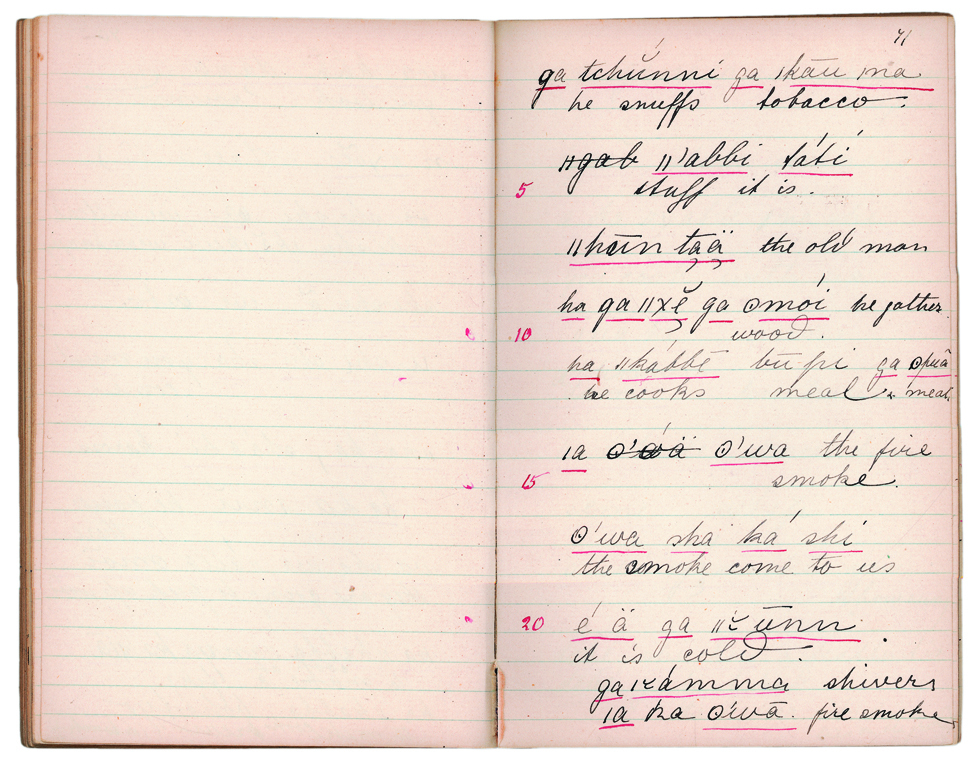 41
ga tchŭnní ga ıkāu ına
he snuffs tobacco.
ǁgab ǁ'abbi táti
5 stuff it is.
ǁkūn tạạ̈ the old man
ha ga ǁxĕ ga ʘmói he gather
10 wood.
ha ǁkábbē bu pi ga ʘpuä
he cooks meal & meal
ıa ʘ'wa the fire
15 smoke.
ʘ'wa sha ká shi
the smoke come to us
20 é ä ga ūnn
it is cold.
shivers
ıa ka ʘ'wā. fire smoke